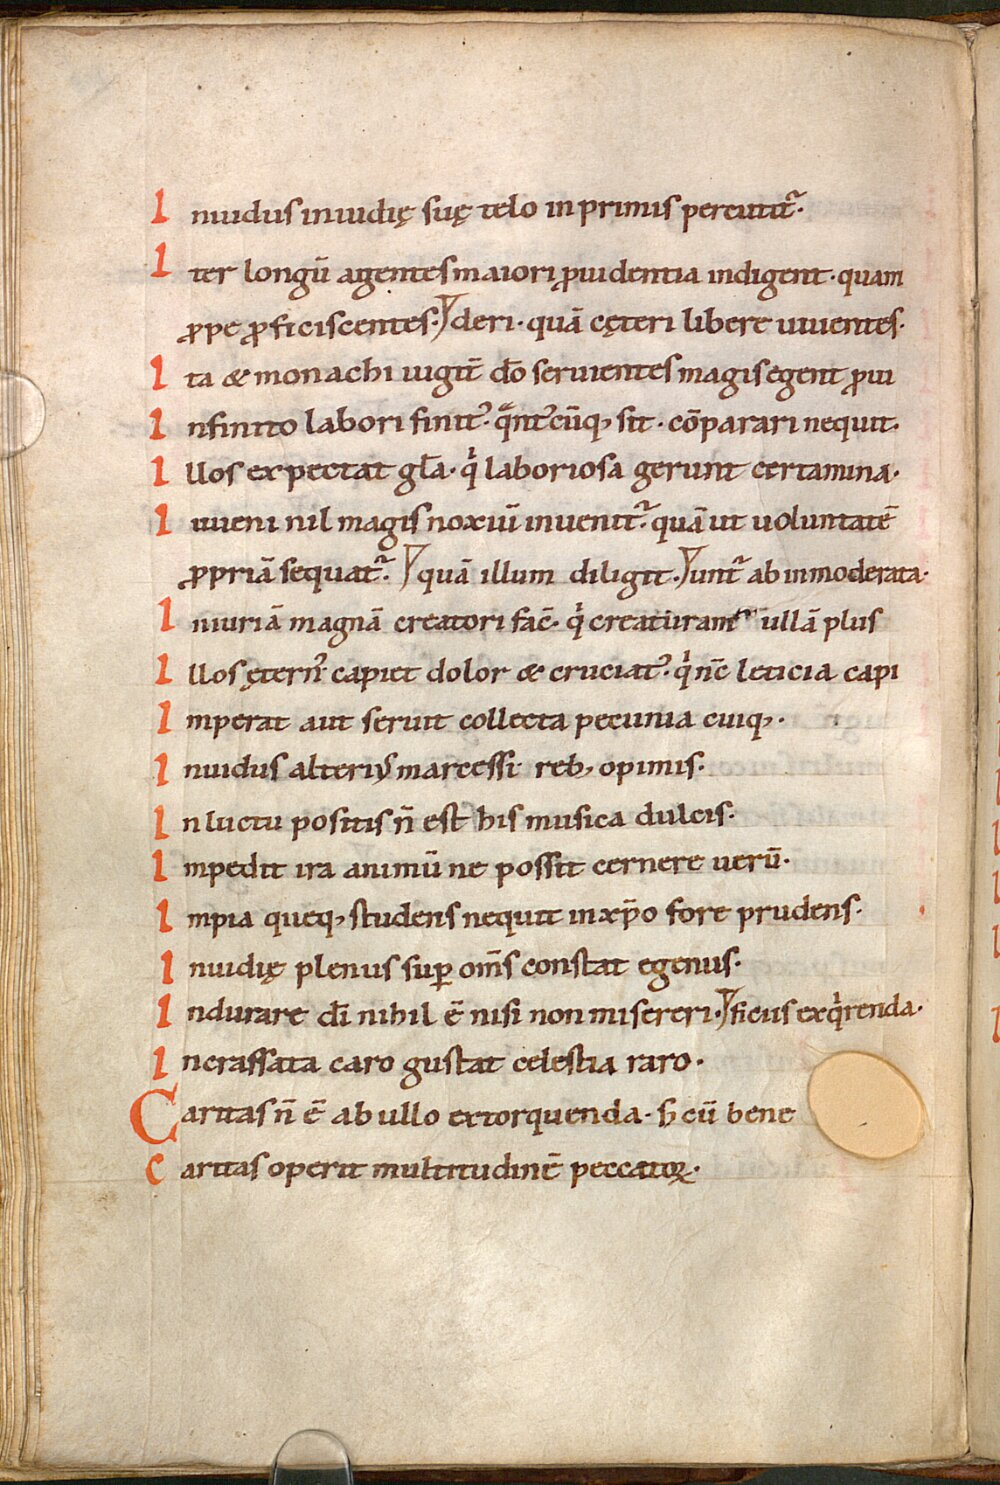 Inuidus inuidię suę telo inprimis percutit᷑.
Iter longū agentes maiori ꝓuidentia indigent. quam
ꝓpe ꝓficiscentes. deri. quā cęteri libere uiuentes.
Ita & monachi iugit̄ dō seruientes magis egent ꝓui
Infinito labori finit᾽. qͣnt᾽cūq; sit. cōparari nequit.
Illos expectat gl̄a. qͥ laboriosa gerunt certamina.
Iuueni nil magis noxiū inuenit᷑. quā ut uoluntatē
ꝓpriā sequat᷑. quā illum diligit. unt᷑ ab inmoderata.
Iniuriā magnā creatori fac̄. qͥ creaturam ullā plus
Illos ętern᾽ capiet dolor & cruciat᾽. qͥ nc̄ leticia capi
Imperat aut seruit collecta pecunia cuiq;.
Inuidus alteriꝰ marcessit reb; opimis.
In luctu positis n̄ est his musica dulcis.
Impedit ira animū ne possit cernere uerū.
Impia queq; studens nequit in xp̄o fore prudens.
Inuidię plenus suꝑ om̄s constat egenus.
Indurare dī nihil ē nisi non misereri. ficus exqͥrenda.
Incrassata caro gustat celestia raro.
Caritas n̄ ē ab ullo extorquenda. s; cū bene
Caritas operit multitudinē peccatoꝝ.